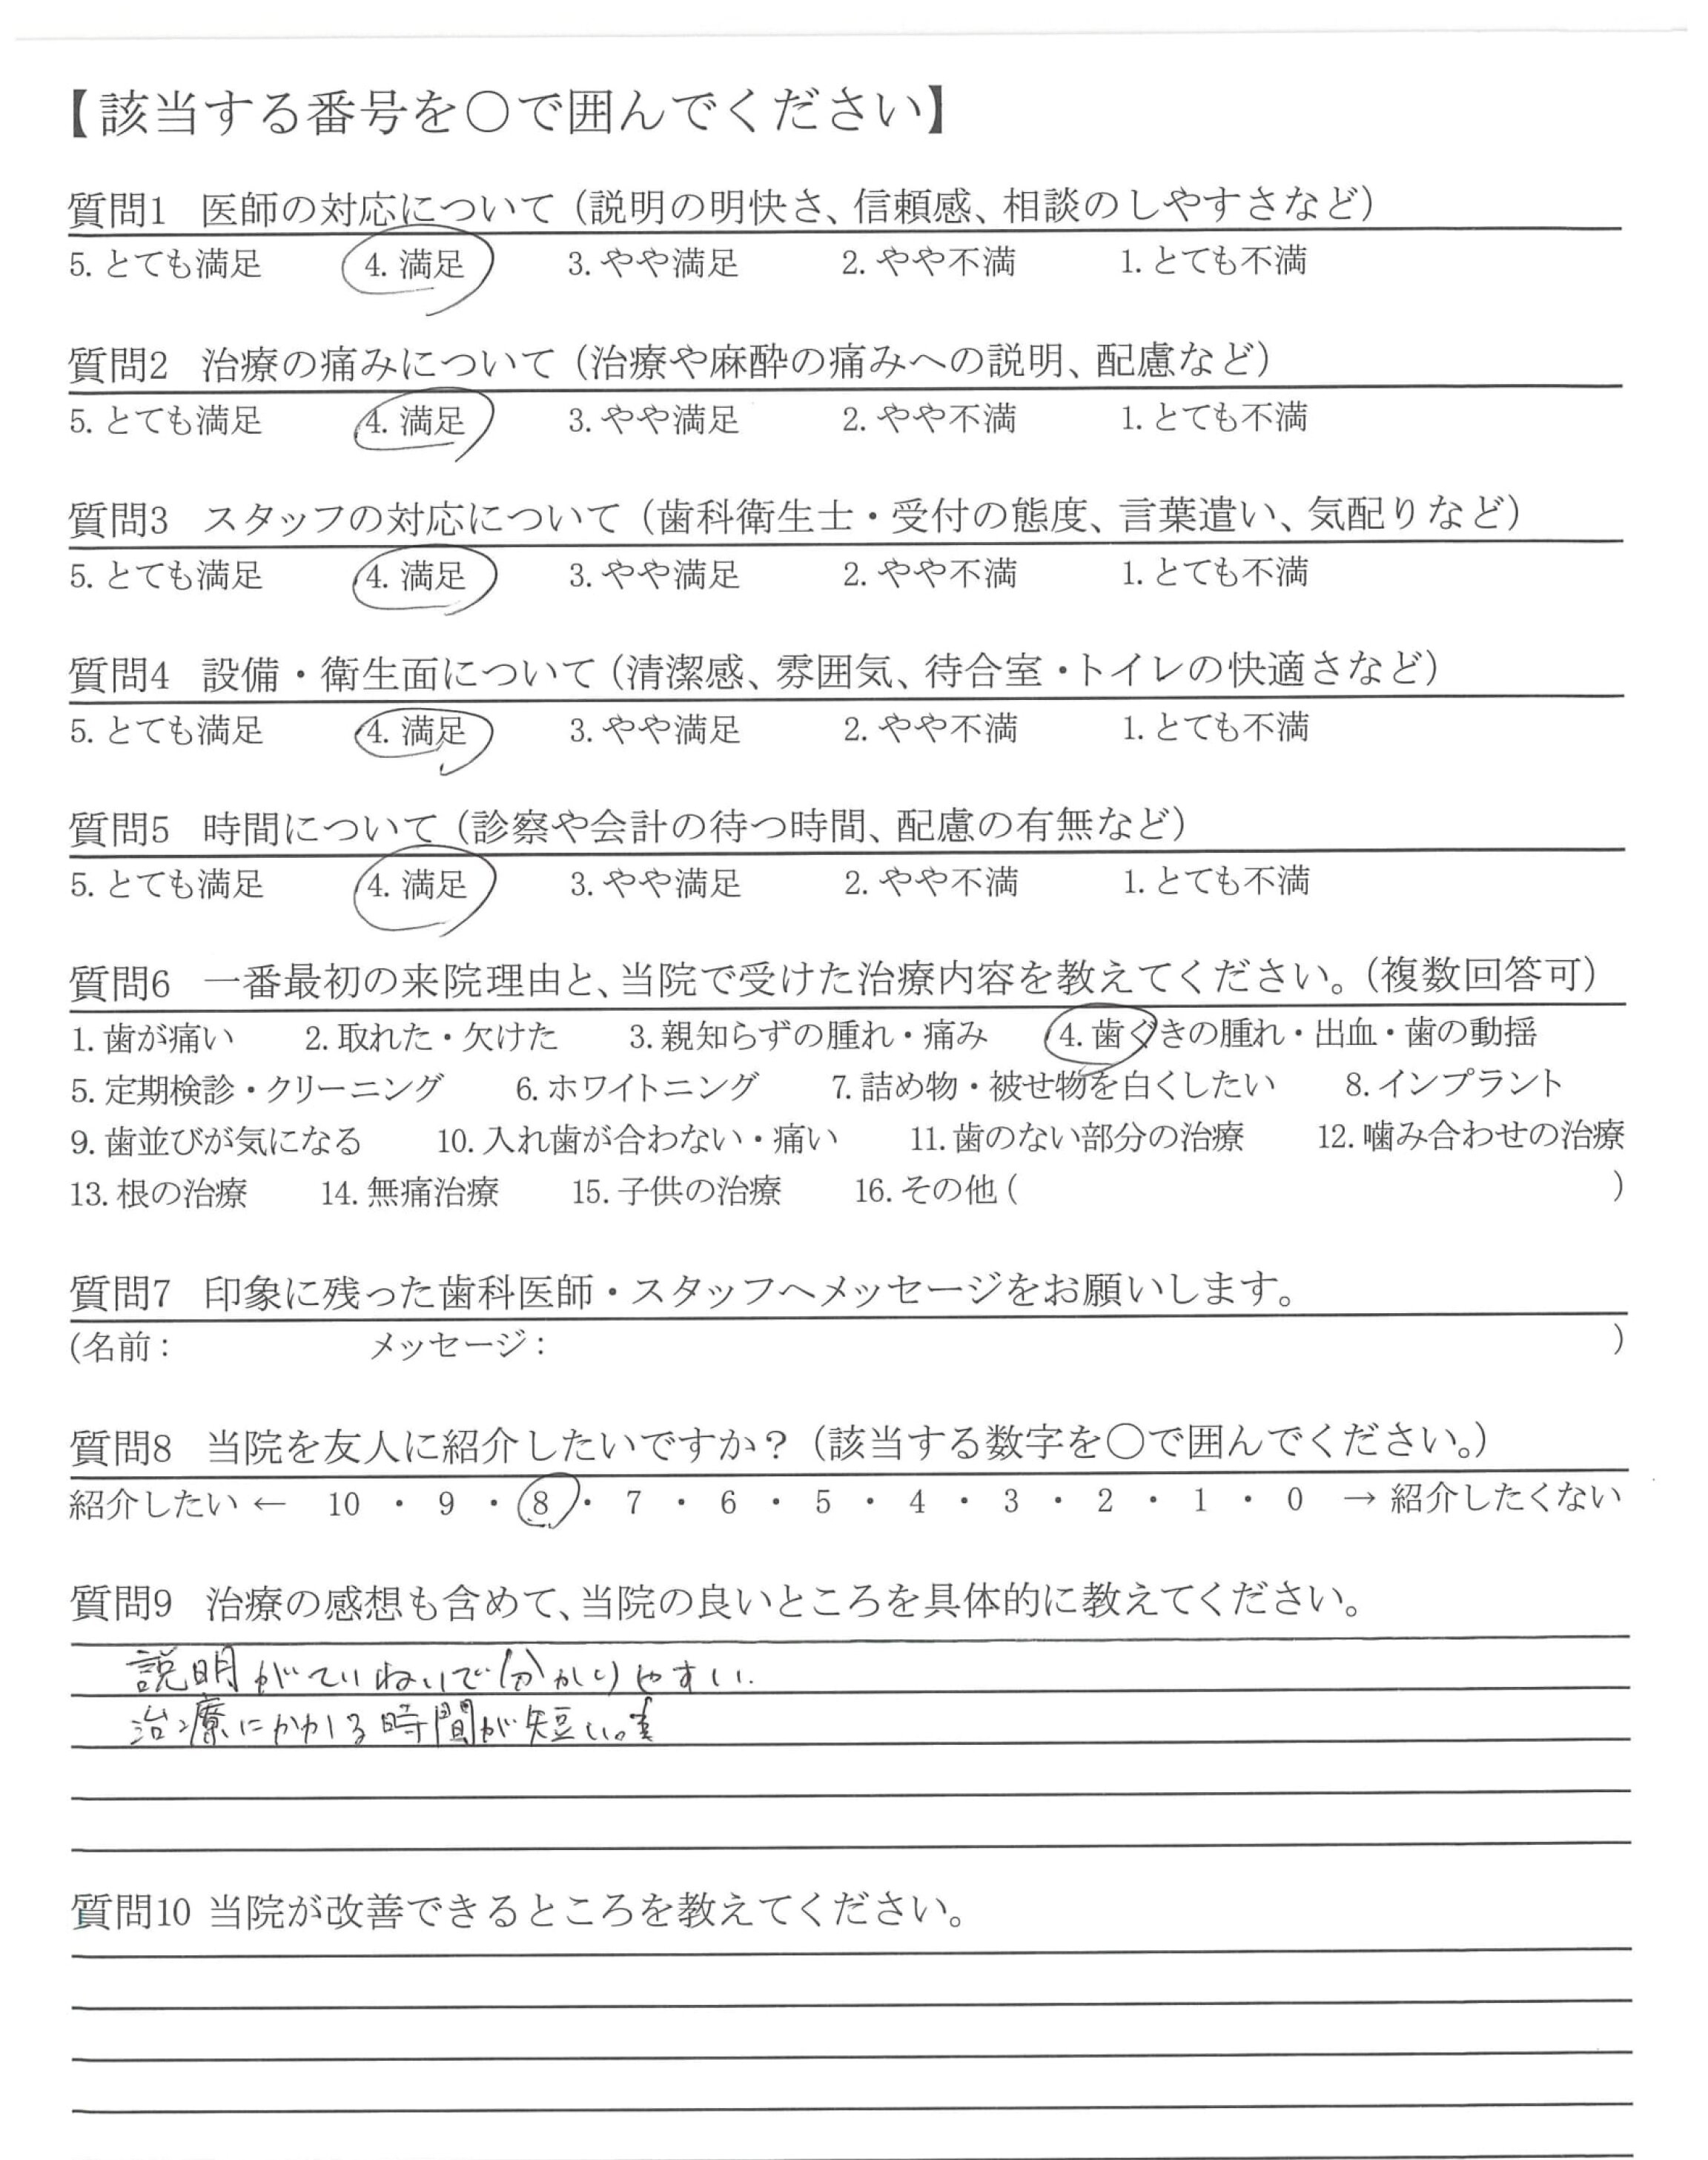 【該当する番号を○で囲んでください】
質問1 医師の対応について（説明の明快さ、信頼感、相談のしやすさなど）
5. とても満足 4. 満足 3. やや満足 2. やや不満 1. とても不満
質問2 治療の痛みについて（治療や麻酔の痛みへの説明、配慮など）
5. とても満足 4. 満足 3. やや満足 2. やや不満 1. とても不満
質問3 スタッフの対応について（歯科衛生士・受付の態度、言葉遣い、気配りなど）
5. とても満足 4. 満足 3. やや満足 2. やや不満 1. とても不満
質問4 設備・衛生面について（清潔感、雰囲気、待合室・トイレの快適さなど）
5. とても満足 4. 満足 3. やや満足 2. やや不満 1. とても不満
質問5 時間について（診察や会計の待つ時間、配慮の有無など）
5. とても満足 4. 満足 3. やや満足 2. やや不満 1. とても不満
質問6 一番最初の来院理由と、当院で受けた治療内容を教えてください。（複数回答可）
1. 歯が痛い 2. 取れた・欠けた 3. 親知らずの腫れ・痛み 4. 歯ぐきの腫れ・出血・歯の動揺
5. 定期検診・クリーニング 6. ホワイトニング 7. 詰め物・被せ物を白くしたい 8. インプラント
9. 歯並びが気になる 10. 入れ歯が合わない・痛い 11. 歯のない部分の治療 12. 噛み合わせの治療
13. 根の治療 14. 無痛治療 15. 子供の治療 16. その他 ( )
質問7 印象に残った歯科医師・スタッフへメッセージをお願いします。
(名前： メッセージ： )
質問8 当院を友人に紹介したいですか？（該当する数字を○で囲んでください。）
紹介したい ← 10 ・ 9 ・ 8 ・ 7 ・ 6 ・ 5 ・ 4 ・ 3 ・ 2 ・ 1 ・ 0 → 紹介したくない
質問9 治療の感想も含めて、当院の良いところを具体的に教えてください。
説明がていねいで分かりやすい.
治療にかかる時間が短い。
質問10 当院が改善できるところを教えてください。